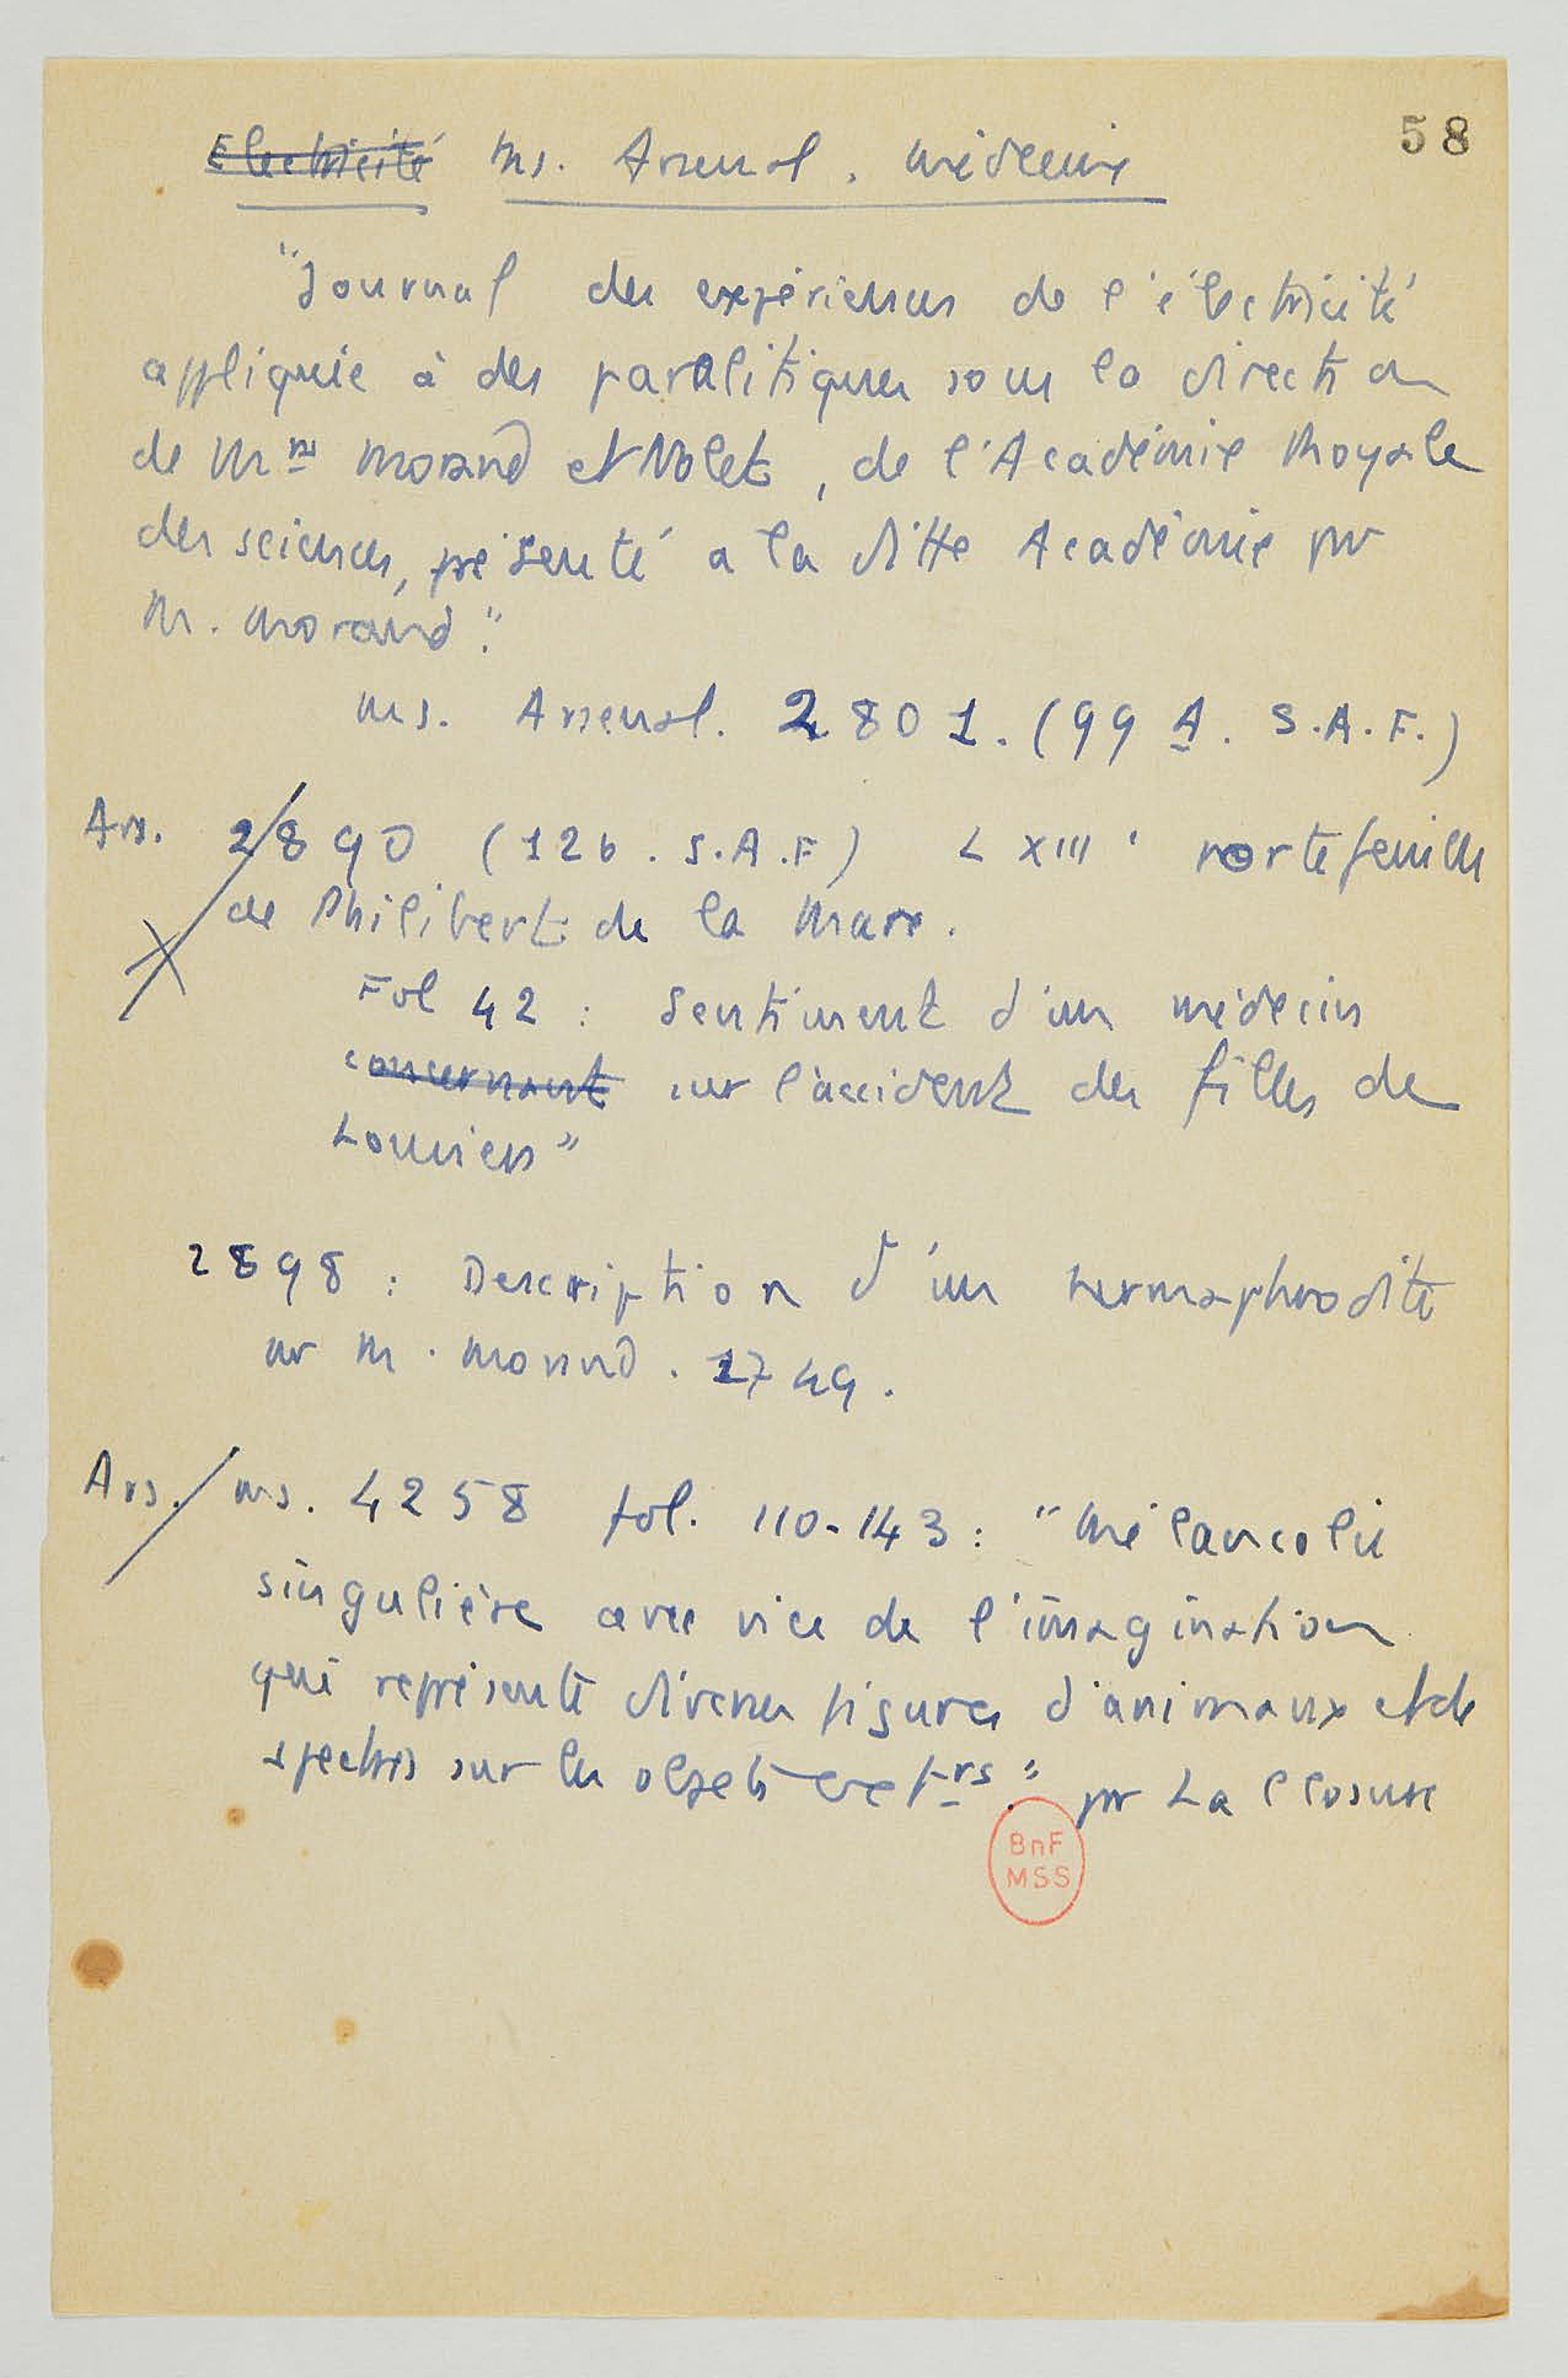 58
Electricité Ms. Arsenal. médecine
"Journal des expériences de l'électricité
appliquée à des paralitiques sous la direction
de Mrs Morand et Nolet, de l'Académie Royale
des sciences, présenté a la ditte Académie par
M. Morand".
ms. Arsenal. 2801. (99 A. S.A.F.)
Ars. 2890 (126. S.A.F) LXIII' portefeuille
de Philibert de la Mare.
Fol 42 : Sentiment d'un médecin
concernant sur l'accident des filles de
Louviers"
2898 : Description d'un hermaphrodite
par M. Morand. 1749.
Ars. ms. 4258 fol. 110-143 : "Mélancolie
singulière avec vice de l'imagination
qui représente diverses figures d'animaux et de
spectres sur les objets extrs." par La Closure
BnF
MSS